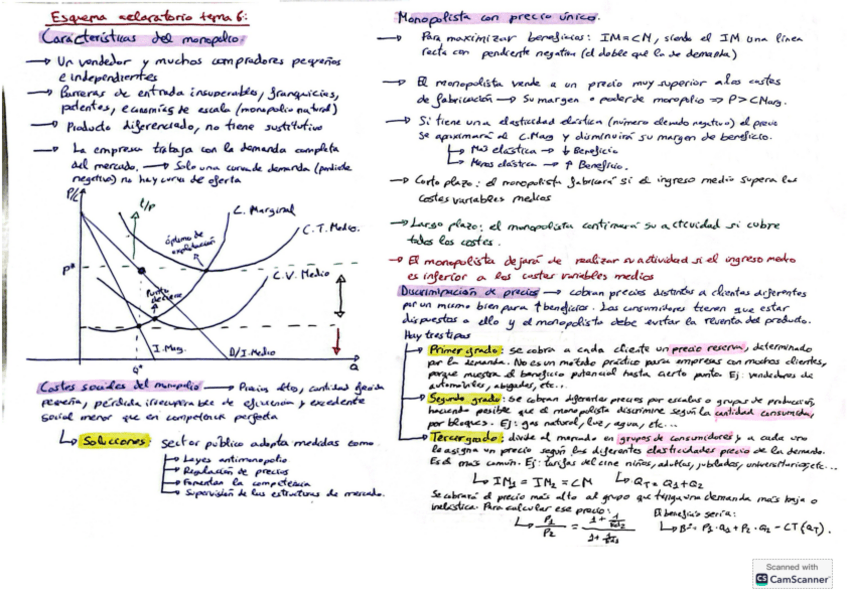 Esquema aclaratorio tema 6:
Características del monopolio:
→ Un vendedor y muchos compradores pequeños
e independientes
→ Barreras de entrada insuperables, franquicias,
patentes, economías de escala (monopolio natural)
→ Producto diferenciado, no tiene sustitutivo
→ La empresa trabaja con la demanda completa
del mercado. → Solo una curva de demanda (pendiente
negativa) no hay curva de oferta
P/C
L/P
C. Marginal
óptimo de
explotación
C.T. Medio.
P*
C.V. Medio
Punto
de cierre
I.Mag.
D/I.Medio
Q*
Q
Costes sociales del monopolio → Precios altos, cantidad ofrecida
pequeña, pérdida irrecuperable de eficiencia y excedente
social menor que en competencia perfecta
↳ Soluciones: sector público adopta medidas como:
↳ Leyes antimonopolio
↳ Regulación de precios
↳ Fomentar la competencia
↳ Supervisión de las estructuras de mercado.
Monopolista con precio único.
→ Para maximizar beneficios: IM=CM, siendo el IM una línea
recta con pendiente negativa (el doble que la de demanda)
→ El monopolista vende a un precio muy superior a los costes
de fabricación → Su margen o poder de monopolio => P>CMarg.
→ Si tiene una elasticidad elástica (número elevado negativo) el precio
se aproximará al C.Mag y disminuirá su margen de beneficio.
↳ Más elástica → ↓ Beneficio
↳ Menos elástica → ↑ Beneficio.
→ Corto plazo: el monopolista fabricará si el ingreso medio supera los
costes variables medios
→ Largo plazo: el monopolista continuará su actividad si cubre
todos los costes.
→ El monopolista dejará de realizar su actividad si el ingreso medio
es inferior a los costes variables medios
Discriminación de precios → cobran precios distintos a clientes diferentes
por un mismo bien para ↑ beneficios. Los consumidores tienen que estar
dispuestos a ello y el monopolista debe evitar la reventa del producto.
Hay tres tipos
→ Primer grado: se cobra a cada cliente un precio reserva, determinado
por la demanda. No es un método práctico para empresas con muchos clientes,
porque muestra el beneficio potencial hasta cierto punto. Ej: vendedores de
automóviles, abogados, etc...
→ Segundo grado: se cobran diferentes precios por escalas o grupos de producción,
haciendo posible que el monopolista discrimine según la cantidad consumida,
por bloques. Ej: gas natural, luz, agua, etc...
→ Tercer grado: divide al mercado en grupos de consumidores y a cada uno
le asigna un precio según las diferentes elasticidades precio de la demanda.
Es el más común. Ej: tarifas del cine niños, adultos, jubilados, universitarios, etc...
↳ IM1 = IM2 = CM ↳ QT = Q1+Q2
Se cobrará el precio más alto al grupo que tenga una demanda más baja o
inelástica. Para calcular ese precio: El beneficio sería:
↳ P1/P2 = ↳ B°= P1·Q1+P2·Q2 − CT(QT).
Scanned with
CS CamScanner